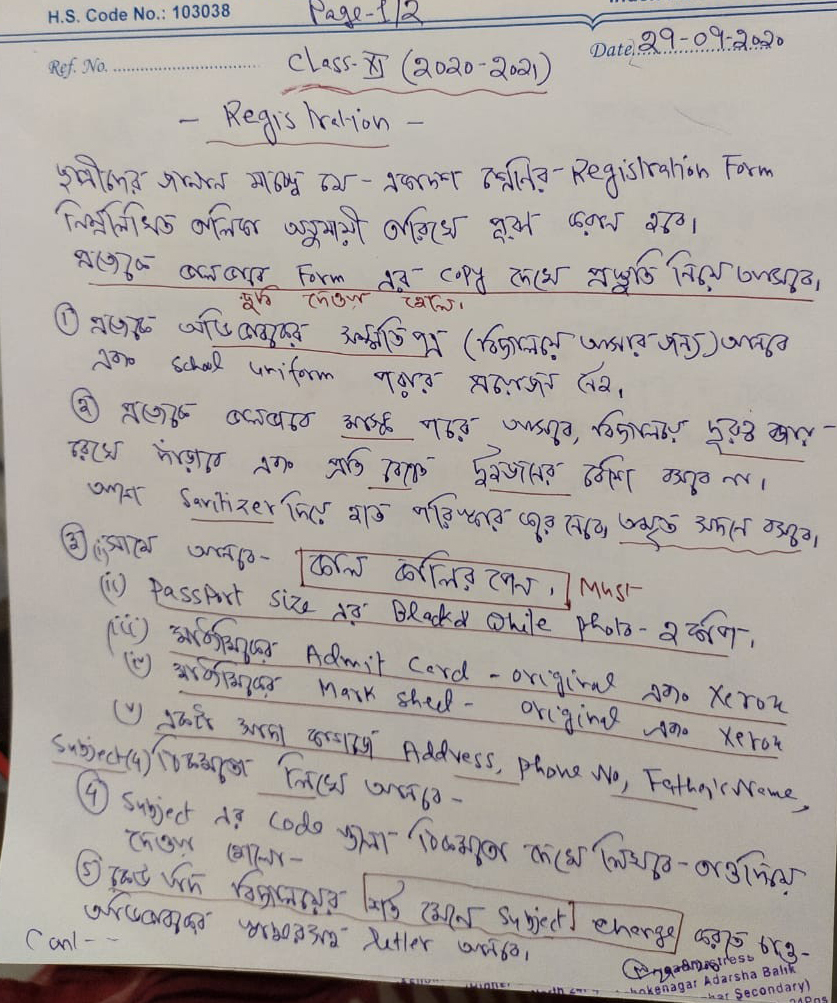 H.S. Code No.: 103038
Page-1/2
Ref. No.
Date 29-09-2020
Class-XI (2020-2021)
- Registration -
ছাত্রীদের জানান যাচ্ছে যে - একাদশ শ্রেনির - Registration Form
নিম্নলিখিত তালিকা অনুযায়ী তারিখে পূরণ করান হবে।
প্রত্যেকে ভালোভাবে Form এর copy দেখে প্রস্তুতি নিয়ে আসবে।
ছবি দেওয়া হোলো।
① প্রত্যেকে অভিভাবকের সম্মতিপত্র (বিদ্যালয়ে আসার জন্য) আনবে
এবং School uniform পরার প্রয়োজন নেই।
② প্রত্যেকে ভালোভাবে মাস্ক পরে আসবে, বিদ্যালয়ে দূরত্ব বজায়-
রেখে দাঁড়াবে এবং প্রতি বেঞ্চে দুইজনের বেশি বসবে না।
Sanitizer দিয়ে হাত পরিস্কার করে নেবে,
③ (i) সাথে আনবে- কালো কালির পেন। Must
(ii) Passport size এর Black & White photo - ২ কপি।
(iii) মাধ্যমিকের Admit Card - original এবং Xerox
(iv) মাধ্যমিকের Mark Sheet - original এবং Xerox
(v) একটা সাদা কাগজে Address, Phone No, Father's Name,
Subject(4) ঠিকমতো লিখে আনবে-
④ Subject এর Code গুলো ঠিকমতো দেখে লিখবে-
দেওয়া হোলো-
⑤ কেউ যদি বিদ্যালয়ের শর্ত মেনে Subject change করতে চাও-
অভিভাবকের letter আনবে।
Cont--
Adarsha Balik
Secondary)